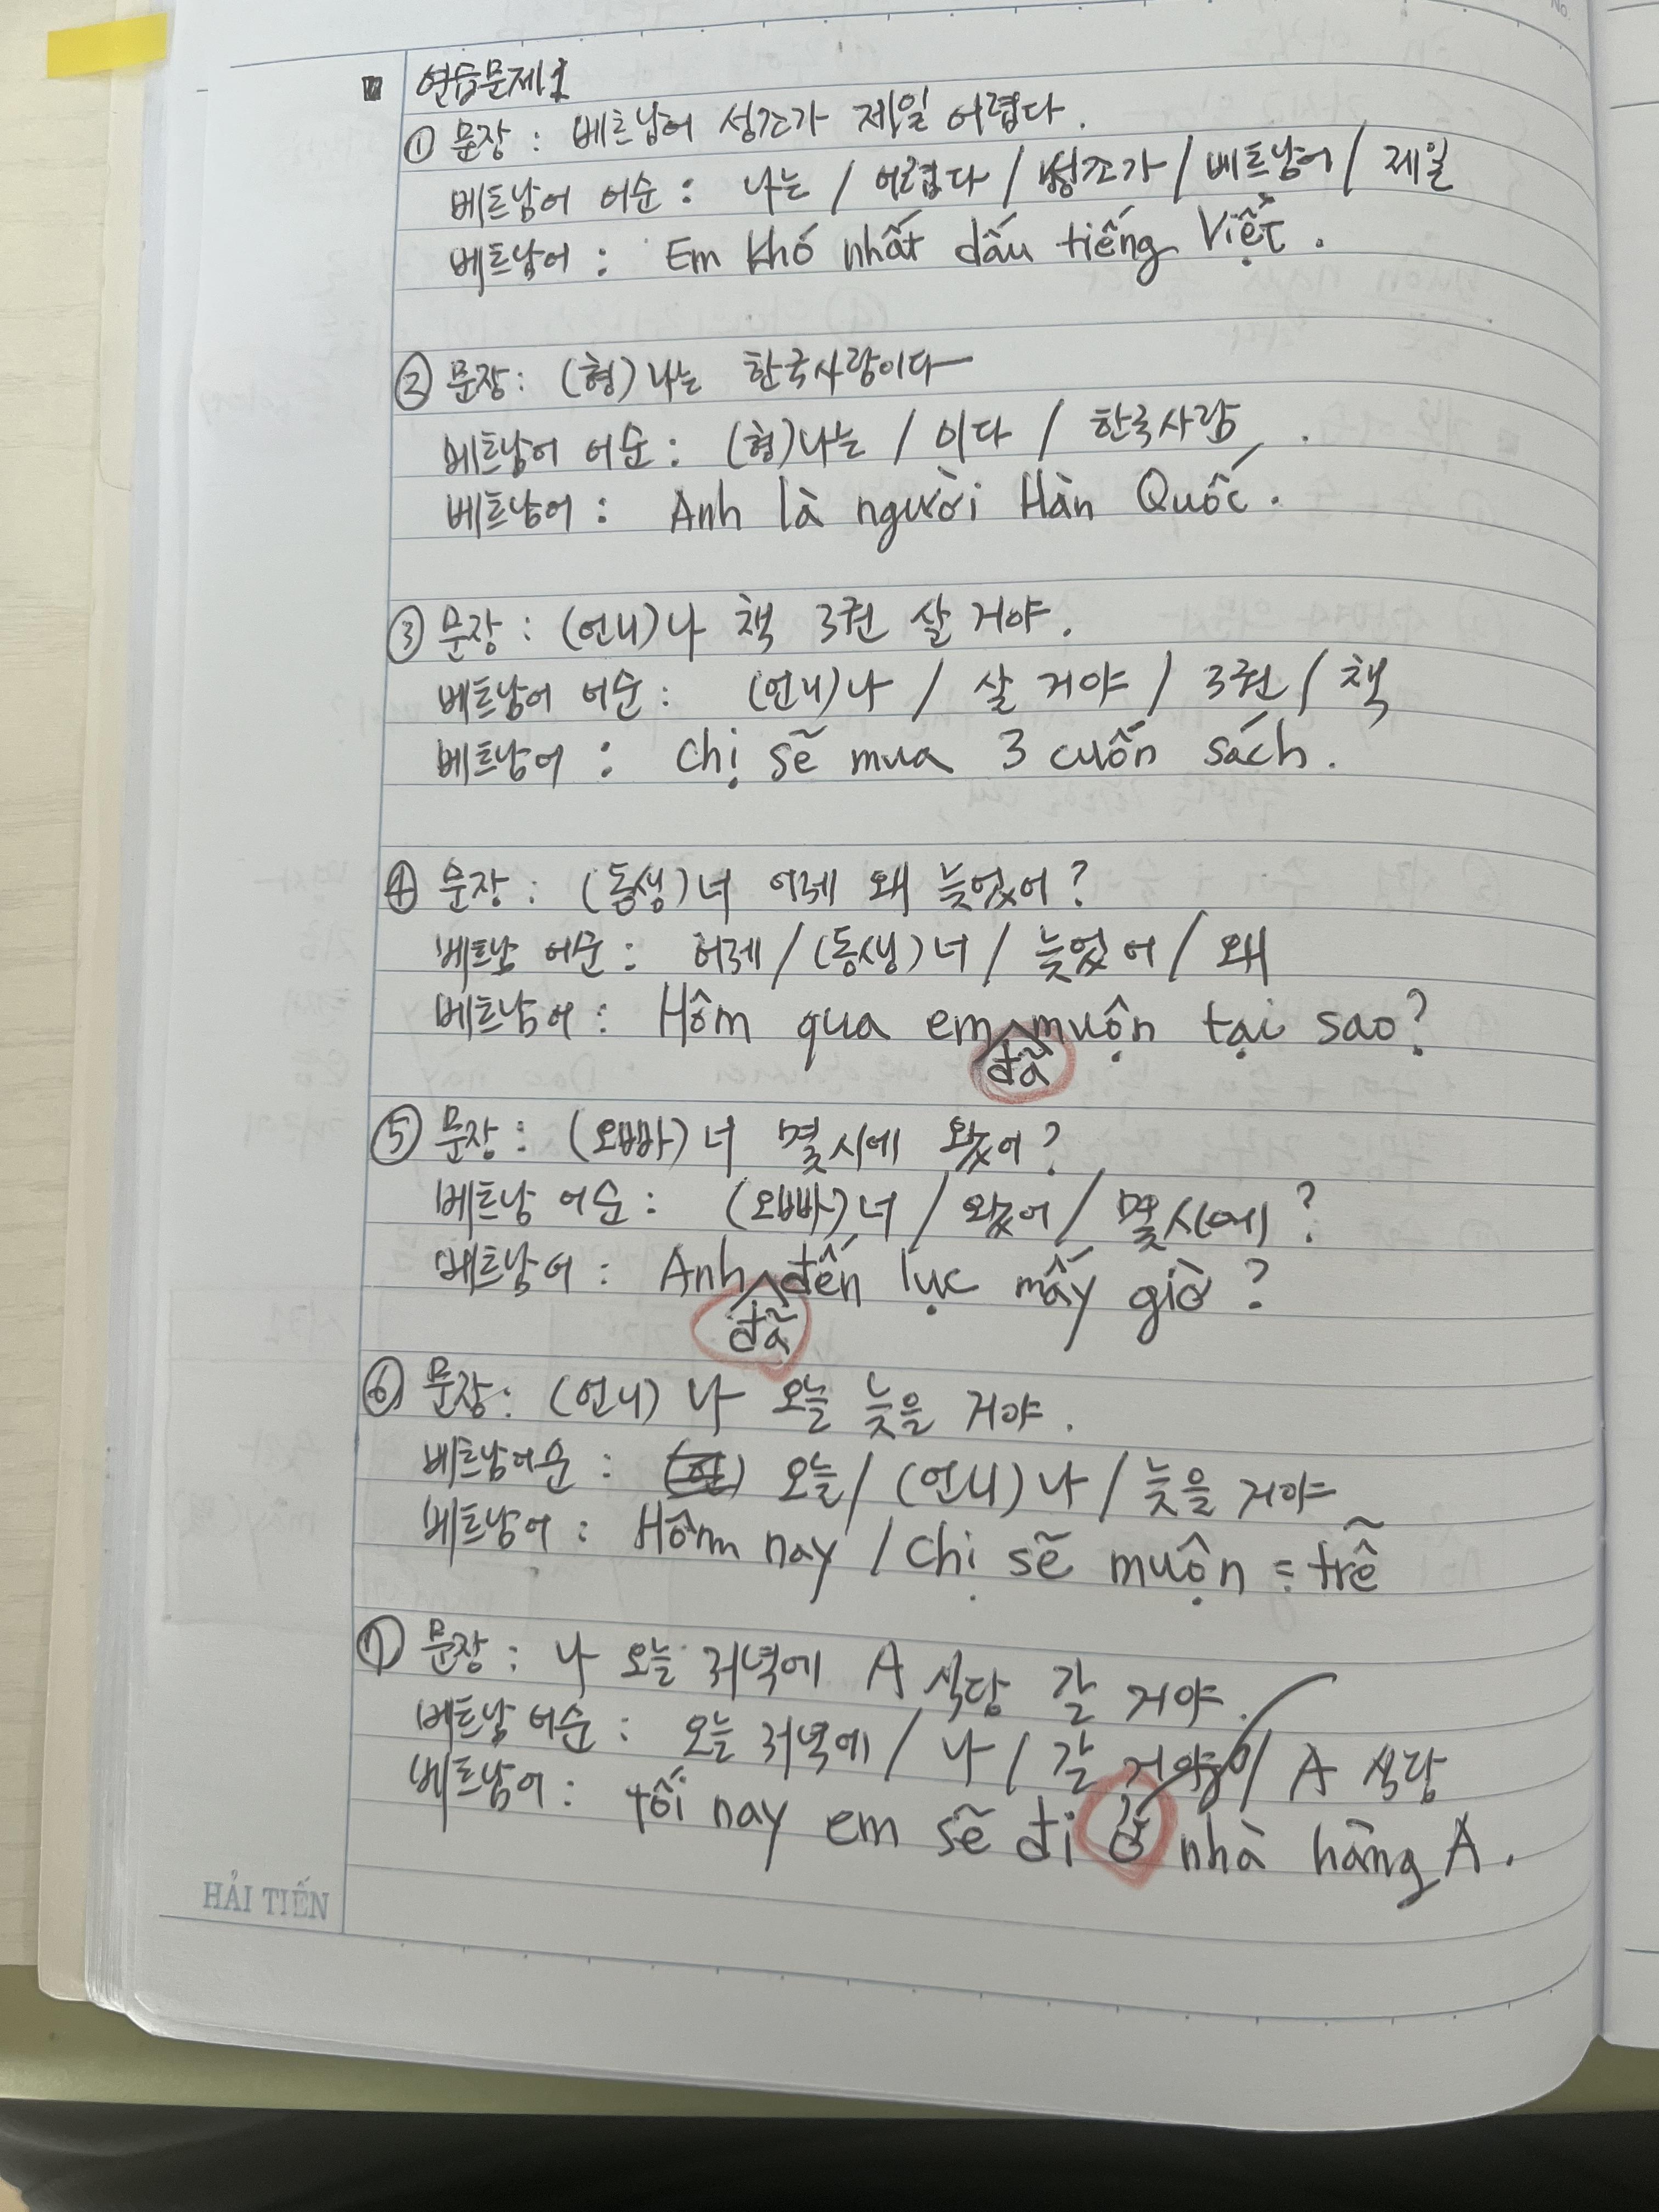 연습문제1
① 문장 : 베트남어 성조가 제일 어렵다.
베트남어 어순 : 나는 / 어렵다 / 성조가 / 베트남어 / 제일
베트남어 : Em khó nhất dấu tiếng Việt.
② 문장 : (형)나는 한국사람이다
베트남어 어순 : (형)나는 / 이다 / 한국사람.
베트남어 : Anh là người Hàn Quốc.
③ 문장 : (언니)나 책 3권 살 거야.
베트남어 어순 : (언니)나 / 살 거야 / 3권 / 책
베트남어 : Chị sẽ mua 3 cuốn sách.
④ 문장 : (동생)너 어제 왜 늦었어?
베트남 어순 : 어제 / (동생)너 / 늦었어 / 왜
베트남어 : Hôm qua em muộn tại sao?
đã
⑤ 문장 : (오빠)너 몇시에 왔어?
베트남 어순 : (오빠)너 / 왔어 / 몇시에?
베트남어 : Anh đến lục mấy giờ?
đã
⑥ 문장 : (언니) 나 오늘 늦을 거야.
베트남어순 : 오늘 / (언니)나 / 늦을 거야
베트남어 : Hôm nay / Chị sẽ muộn = trễ
⑦ 문장 : 나 오늘 저녁에 A 식당 갈 거야.
베트남 어순 : 오늘 저녁에 / 나 / 갈 거야 / A 식당
베트남어 : tối nay em sẽ đi ở nhà hàng A.
HẢI TIẾN